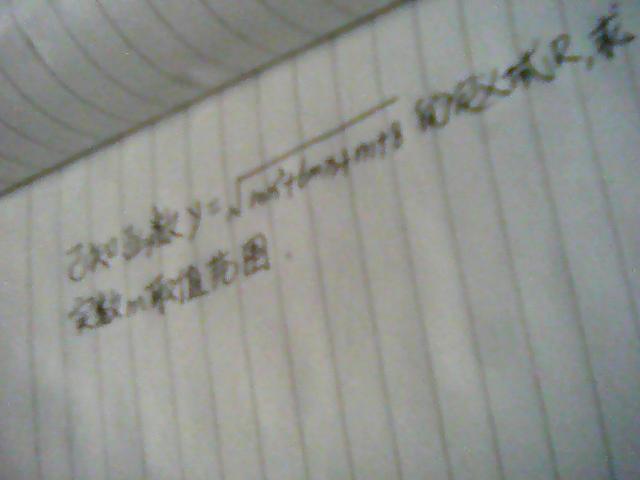 已知函数 y=√mx²+6mx+m+8 的定义域R,求
实数m取值范围.